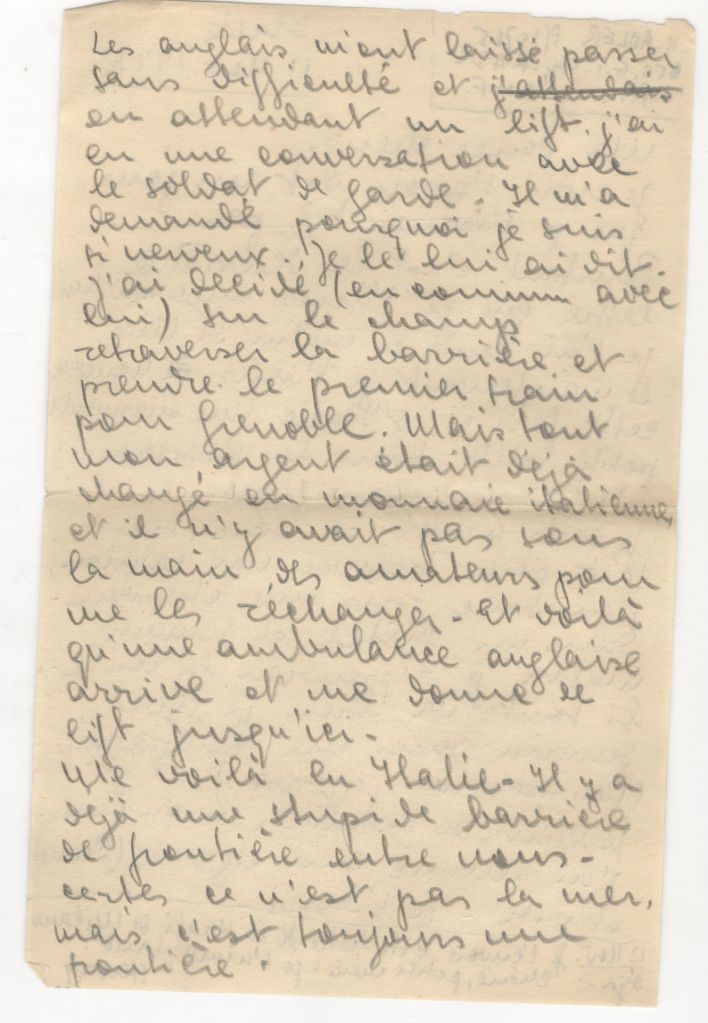 Les anglais m'ont laissé passer
sans difficulté et j'attendais
en attendant un lift j'ai
eu une conversation avec
le soldat de garde. Il m'a
demandé pourquoi je suis
si nerveux. Je le lui ai dit.
J'ai décidé (en commun avec
lui) sur le champ
retraverser la barrière et
prendre le premier train
pour Grenoble. Mais tout
mon argent était déjà
changé en monnaie italienne,
et il n'y avait pas sous
la main des amateurs pour
me les réchanger. Et voilà
qu'une ambulance anglaise
arrive et me donne le
lift jusqu'ici.
Me voilà en Italie. Il y a
déjà une stupide barrière
de frontière entre nous.
certes ce n'est pas la mer,
mais c'est toujours une
frontière.